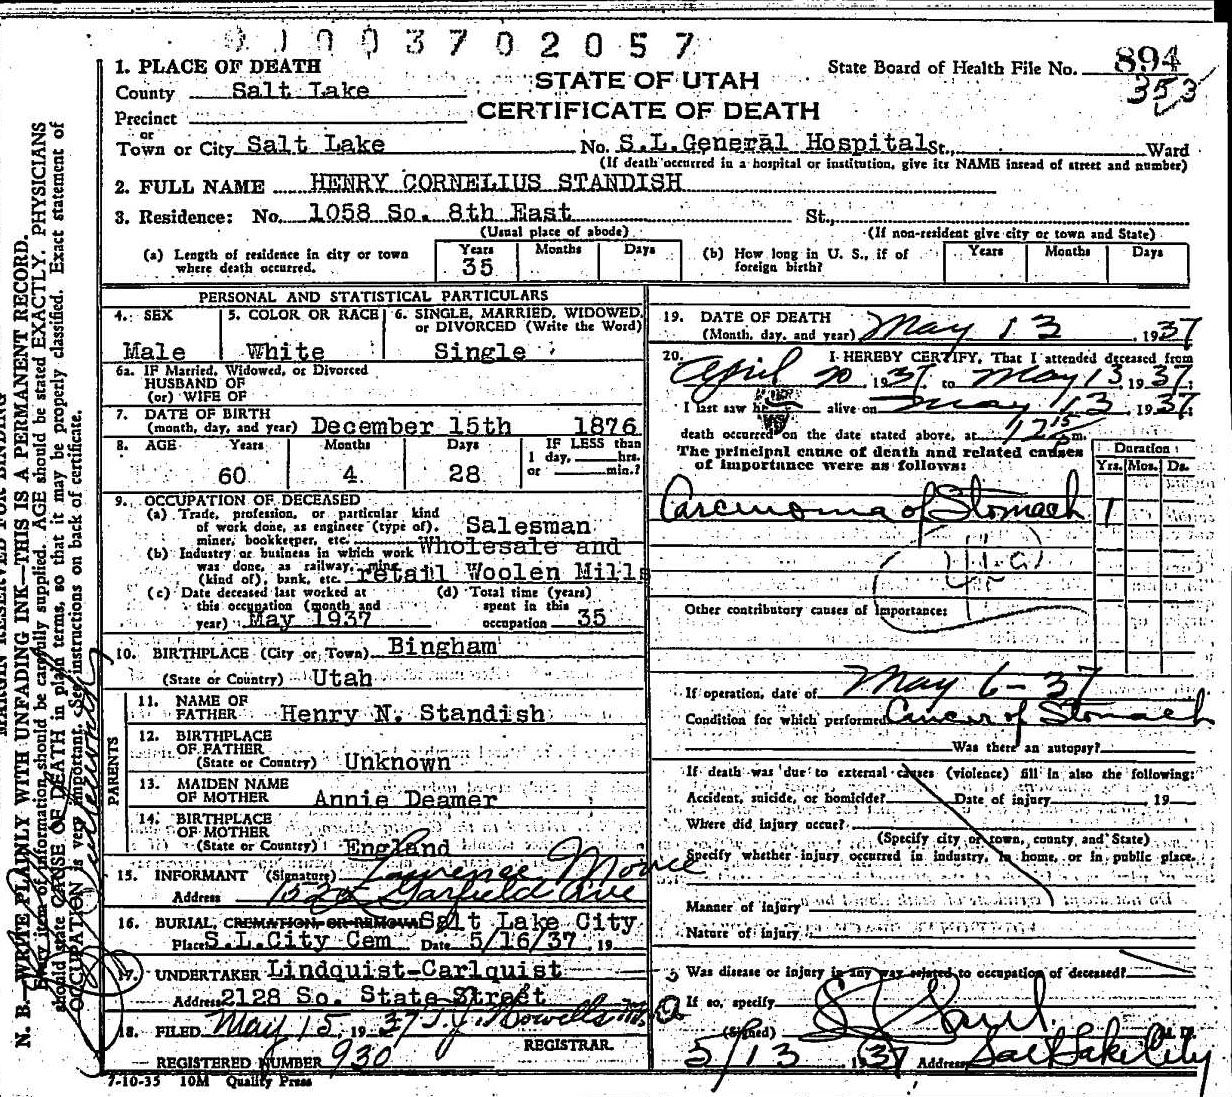 0 1 0 0 3 7 0 2 0 5 7
1. PLACE OF DEATH
County Salt Lake
STATE OF UTAH
State Board of Health File No. 894
353
Precinct
CERTIFICATE OF DEATH
or
Town or City Salt Lake No. S.L.General Hospital St., Ward
(If death occurred in a hospital or institution, give its NAME insead of street and number)
2. FULL NAME HENRY CORNELIUS STANDISH
3. Residence: No. 1058 So. 8th East St.,
(Usual place of abode) (If non-resident give city or town and State)
(a) Length of residence in city or town where death occurred. Years 35 Months Days
(b) How long in U. S., if of foreign birth? Years Months Days
PERSONAL AND STATISTICAL PARTICULARS
4. SEX Male
5. COLOR OR RACE White
6. SINGLE, MARRIED, WIDOWED, or DIVORCED (Write the Word) Single
6a. IF Married, Widowed, or Divorced
HUSBAND OF
(or) WIFE OF
7. DATE OF BIRTH
(month, day, and year) December 15th 1876
8. AGE Years 60 Months 4 Days 28
IF LESS than
1 day, hrs.
or min.?
9. OCCUPATION OF DECEASED
(a) Trade, profession, or particular kind
of work done, as engineer (type of), Salesman
miner, bookkeeper, etc.
(b) Industry or business in which work Wholesale and
was done, as railway, mine
(kind of), bank, etc. retail Woolen Mills
(c) Date deceased last worked at
this occupation (month and
year) May 1937
(d) Total time (years)
spent in this
occupation 35
10. BIRTHPLACE (City or Town) Bingham
(State or Country) Utah
PARENTS
11. NAME OF
FATHER Henry N. Standish
12. BIRTHPLACE
OF FATHER
(State or Country) Unknown
13. MAIDEN NAME
OF MOTHER Annie Deamer
14. BIRTHPLACE
OF MOTHER
(State or Country) England
15. INFORMANT (Signature) Lawrence Moore
Address 1520 Garfield Ave
16. BURIAL, CREMATION OR REMOVAL Salt Lake City
Place S.L.City Cem Date 5/16/37 19
17. UNDERTAKER Lindquist-Carlquist
Address 2128 So. State Street
18. FILED May 15, 1937 T.J. Howells
REGISTRAR.
REGISTERED NUMBER 930
7-10-35 10M Quality Press
19. DATE OF DEATH
(Month, day, and year) May 13, 1937
20. I HEREBY CERTIFY, That I attended deceased from
April 20 1937 to May 13, 1937;
I last saw h alive on May 13, 1937;
death occurred on the date stated above, at 12 15 p m.
The principal cause of death and related causes
of importance were as follows:
Duration
Yrs. Mos. Ds.
Carcinoma of Stomach 1
Other contributory causes of importance:
If operation, date of May 6-37
Condition for which performed Cancer of Stomach
Was there an autopsy?
If death was due to external causes (violence) fill in also the following:
Accident, suicide, or homicide? Date of injury 19
Where did injury occur?
(Specify city or town, county and State)
Specify whether injury occurred in industry, in home, or in public place.
Manner of injury
Nature of injury
Was disease or injury in any way related to occupation of deceased?
If so, specify
(Signed) M. D.
5/13 1937 Address Salt Lake City
MARGIN RESERVED FOR BINDING
N. B.—WRITE PLAINLY WITH UNFADING INK—THIS IS A PERMANENT RECORD.
Every item of information should be carefully supplied. AGE should be stated EXACTLY. PHYSICIANS
should state CAUSE OF DEATH in plain terms, so that it may be properly classified. Exact statement of
OCCUPATION is very important. See instructions on back of certificate.